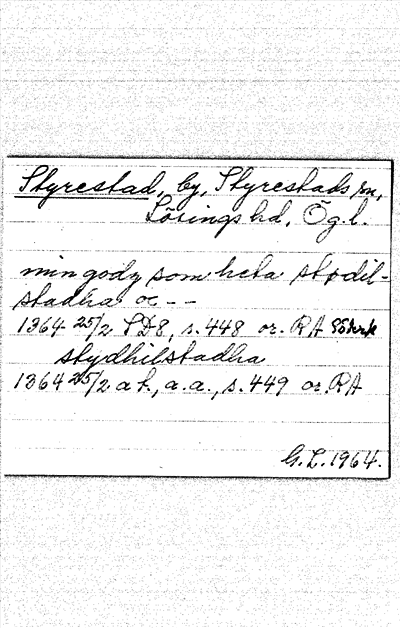 Styrestad, by, Styrestads sn,
Lösings hd, Ög.l.
min godz som heta stødil-
stadha oc --
1364 25/2 SD8, s. 448 or. RA
stydhilstadha
1364 25/2 a t., a.a., s. 449 or. RA
G.L. 1964.